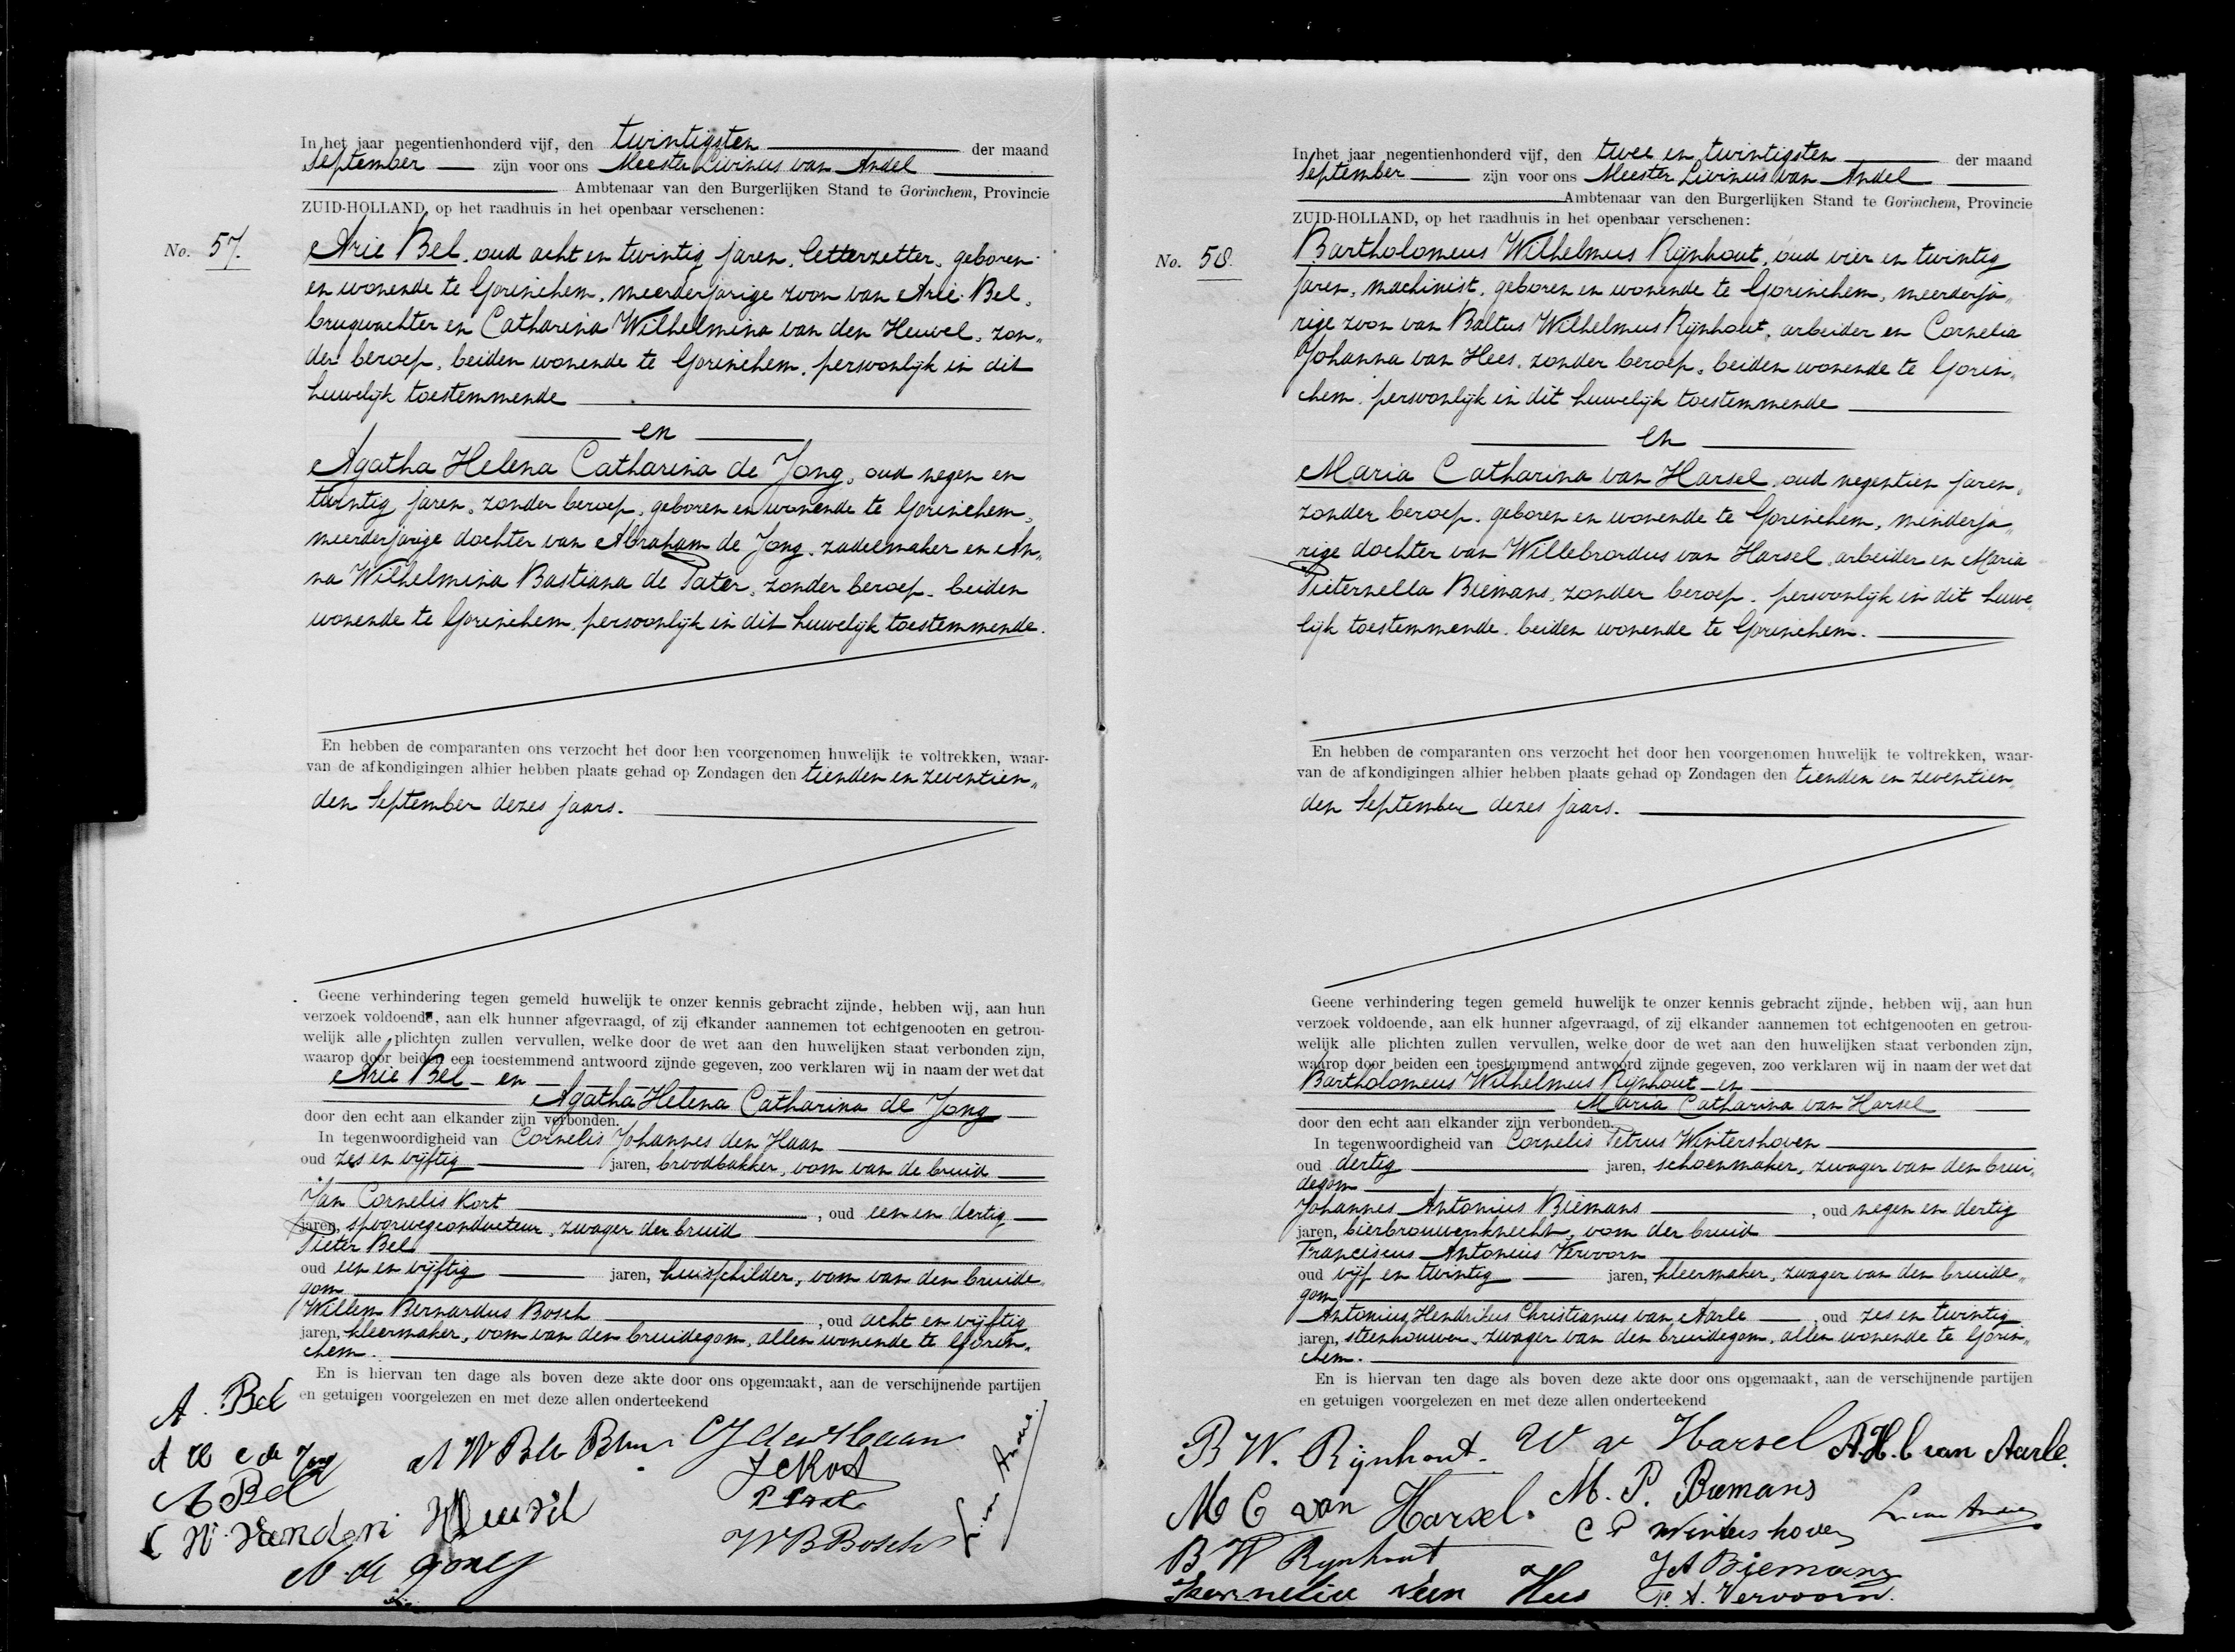 In het jaar negentienhonderd vijf, den twintigsten der maand
September zijn voor ons Meester Livinus van Andel
Ambtenaar van den Burgerlijken Stand te Gorinchem, Provincie
ZUID-HOLLAND, op het raadhuis in het openbaar verschenen:
No. 57. Arie Bel, oud acht en twintig jaren, letterzetter, geboren
en wonende te Gorinchem, meerderjarige zoon van Arie Bel,
brugwachter en Catharina Wilhelmina van den Heuvel, zon„
der beroep, beiden wonende te Gorinchem, persoonlijk in dit
huwelijk toestemmende
en
Agatha Helena Catharina de Jong, oud negen en
twintig jaren, zonder beroep, geboren en wonende te Gorinchem,
meerderjarige dochter van Abraham de Jong, zadelmaker en An„
na Wilhelmina Bastiana de Pater, zonder beroep, beiden
wonende te Gorinchem, persoonlijk in dit huwelijk toestemmende.
En hebben de comparanten ons verzocht het door hen voorgenomen huwelijk te voltrekken, waar-
van de afkondigingen alhier hebben plaats gehad op Zondagen den tienden en zeventien„
den September dezes jaars.
Geene verhindering tegen gemeld huwelijk te onzer kennis gebracht zijnde, hebben wij, aan hun
verzoek voldoende, aan elk hunner afgevraagd, of zij elkander aannemen tot echtgenooten en getrou-
welijk alle plichten zullen vervullen, welke door de wet aan den huwelijken staat verbonden zijn,
waarop door beiden een toestemmend antwoord zijnde gegeven, zoo verklaren wij in naam der wet dat
Arie Bel en
Agatha Helena Catharina de Jong
door den echt aan elkander zijn verbonden.
In tegenwoordigheid van Cornelis Johannes den Haan
oud zes en vijftig jaren, broodbakker, oom van de bruid
Jan Cornelis Kort, oud een en dertig
jaren, spoorwegconducteur, zwager der bruid
Pieter Bel
oud een en vijftig jaren, huisschilder, oom van den bruide„
gom
Willem Bernardus Bosch, oud acht en vijftig
jaren, kleermaker, oom van den bruidegom, allen wonende te Gorin„
chem.
En is hiervan ten dage als boven deze akte door ons opgemaakt, aan de verschijnende partijen
en getuigen voorgelezen en met deze allen onderteekend
A. Bel
A H C de Jong
A Bel
C W van den Heuvel
A. de Jong
C J den Haan
J C Kort
P Bel
W B Bosch
In het jaar negentienhonderd vijf, den twee en twintigsten der maand
September zijn voor ons Meester Livinus van Andel
Ambtenaar van den Burgerlijken Stand te Gorinchem, Provincie
ZUID-HOLLAND, op het raadhuis in het openbaar verschenen:
No. 58. Bartholomeus Wilhelmus Rijnhout, oud vier en twintig
jaren, machinist, geboren en wonende te Gorinchem, meerderja„
rige zoon van Baltus Wilhelmus Rijnhout, arbeider en Cornelia
Johanna van Hees, zonder beroep, beiden wonende te Gorin„
chem, persoonlijk in dit huwelijk toestemmende
en
Maria Catharina van Harsel, oud negentien jaren,
zonder beroep, geboren en wonende te Gorinchem, minderja„
rige dochter van Willebrordus van Harsel, arbeider en Maria
Pieternella Biemans, zonder beroep, persoonlijk in dit huwe„
lijk toestemmende, beiden wonende te Gorinchem.
En hebben de comparanten ons verzocht het door hen voorgenomen huwelijk te voltrekken, waar-
van de afkondigingen alhier hebben plaats gehad op Zondagen den tienden en zeventien„
den September dezes jaars.
Geene verhindering tegen gemeld huwelijk te onzer kennis gebracht zijnde, hebben wij, aan hun
verzoek voldoende, aan elk hunner afgevraagd, of zij elkander aannemen tot echtgenooten en getrou-
welijk alle plichten zullen vervullen, welke door de wet aan den huwelijken staat verbonden zijn,
waarop door beiden een toestemmend antwoord zijnde gegeven, zoo verklaren wij in naam der wet dat
Bartholomeus Wilhelmus Rijnhout en
Maria Catharina van Harsel
door den echt aan elkander zijn verbonden.
In tegenwoordigheid van Cornelis Petrus Wintershoven
oud dertig jaren, schoenmaker, zwager van den brui„
degom
Johannes Antonius Biemans, oud negen en dertig
jaren, bierbrouwersknecht, oom der bruid
Franciscus Antonius Vervoorn
oud vijf en twintig jaren, kleermaker, zwager van den bruide„
gom
Antonius Hendrikus Christianus van Aarle, oud zes en twintig
jaren, steenhouwer, zwager van den bruidegom, allen wonende te Gorin„
chem.
En is hiervan ten dage als boven deze akte door ons opgemaakt, aan de verschijnende partijen
en getuigen voorgelezen en met deze allen onderteekend
B W. Rijnhout. W v Harsel A.H.C van Aarle.
M C van Harsel. M. P. Biemans
C P Wintershoven L. van Andel
B W Rynhout J A Biemans
Kornelia van Hees F. A. Vervoorn.